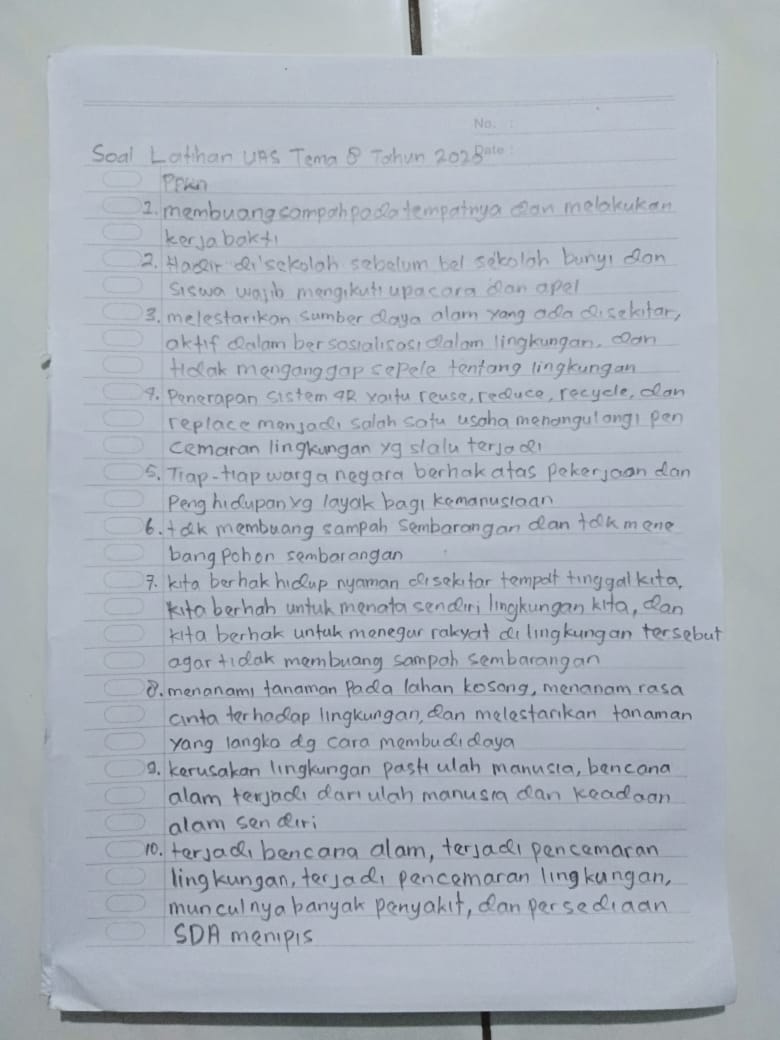 No. :
Date :
Soal Latihan UAS Tema 8 Tahun 2025
PPKn
1. membuang sampah pada tempatnya dan melakukan
kerja bakti
2. Hadir di sekolah sebelum bel sekolah bunyi dan
siswa wajib mengikuti upacara dan apel
3. melestarikan sumber daya alam yang ada disekitar,
aktif dalam bersosialisasi dalam lingkungan, dan
tidak menganggap sepele tentang lingkungan
4. Penerapan sistem 4R yaitu reuse, reduce, recycle, dan
replace menjadi salah satu usaha menangulangi pen
cemaran lingkungan yg slalu terjadi
5. Tiap-tiap warga negara berhak atas pekerjaan dan
Penghidupan yg layak bagi kemanusiaan
6. tdk membuang sampah sembarangan dan tdk mene
bang pohon sembarangan
7. kita berhak hidup nyaman disekitar tempat tinggal kita,
kita berhah untuk menata sendiri lingkungan kita, dan
kita berhak untuk menegur rakyat di lingkungan tersebut
agar tidak membuang sampah sembarangan
8. menanami tanaman pada lahan kosong, menanam rasa
cinta terhadap lingkungan, dan melestarikan tanaman
yang langka dg cara membudidaya
9. kerusakan lingkungan pasti ulah manusia, bencana
alam terjadi dari ulah manusia dan keadaan
alam sendiri
10. terjadi bencana alam, terjadi pencemaran
lingkungan, terjadi pencemaran lingkungan,
munculnya banyak penyakit, dan persediaan
SDA menipis